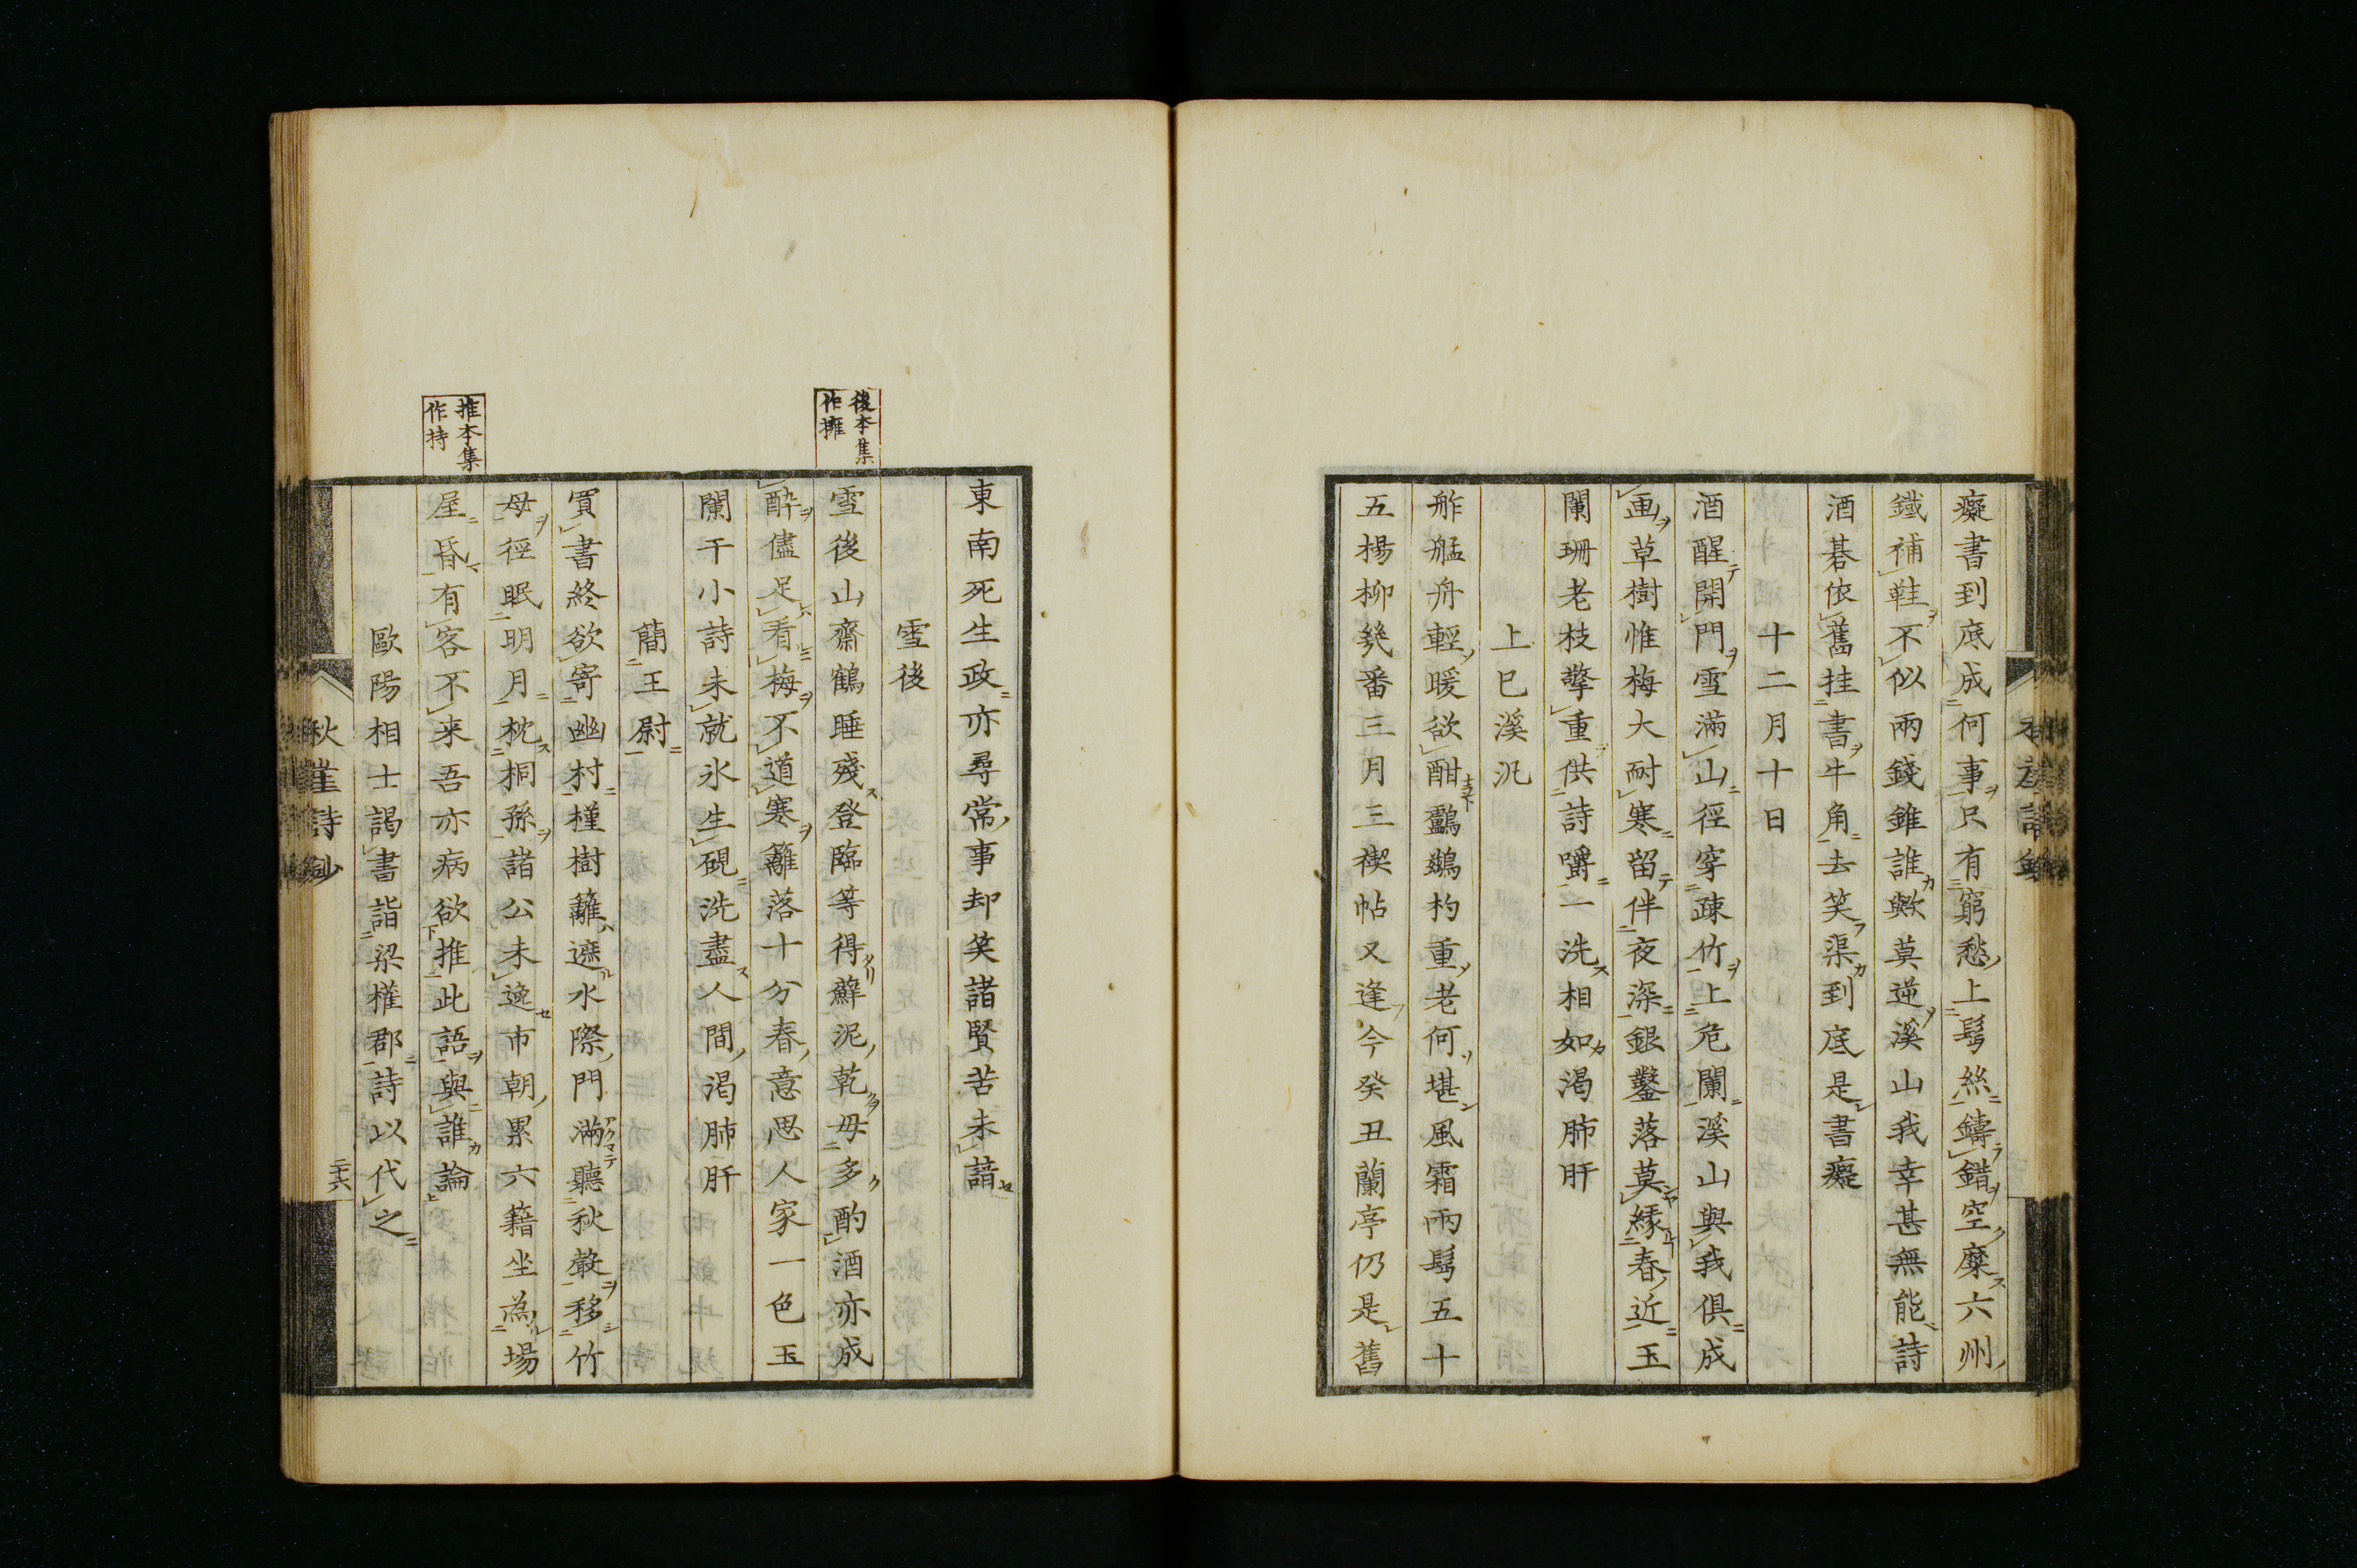 癡書到底成何事只有窮愁上鬂絲鑄錯空糜六州
鐵補鞋不似兩錢錐誰歟莫逆溪山我幸甚無能詩
酒碁依舊挂書牛角去笑渠到底是書癡
十二月十日
酒醒開門雪滿山徑穿疎竹上危闌溪山與我俱成
画草樹惟梅大耐寒留伴夜深銀鑿落莫緣春近玉
闌珊老枝擎重供詩嚼一洗相如渴肺肝
上巳溪汎
舴艋舟輕暖欲酣鸕鷀杓重老何堪風霜兩鬂五十
五楊柳幾番三月三禊帖又逢今癸丑蘭亭仍是舊
東南死生政亦尋常事却笑諸賢苦未諳
雪後
後本集
作擁
雪後山齋鶴睡殘登臨等得蘚泥乾毋多酌酒亦成
醉儘足看梅不道寒籬落十分春意思人家一色玉
闌干小詩未就氷生硯洗盡人間渴肺肝
簡王尉
買書終欲寄幽村槿樹籬遮水際門滿聽秋聲移竹
母徑眠明月枕桐孫諸公未逸市朝累六籍坐為場
推本集
作持
屋昏有客不来吾亦病欲推此語與誰論
歐陽相士謁書詣梁權郡詩以代之
秋崖詩鈔
二十六